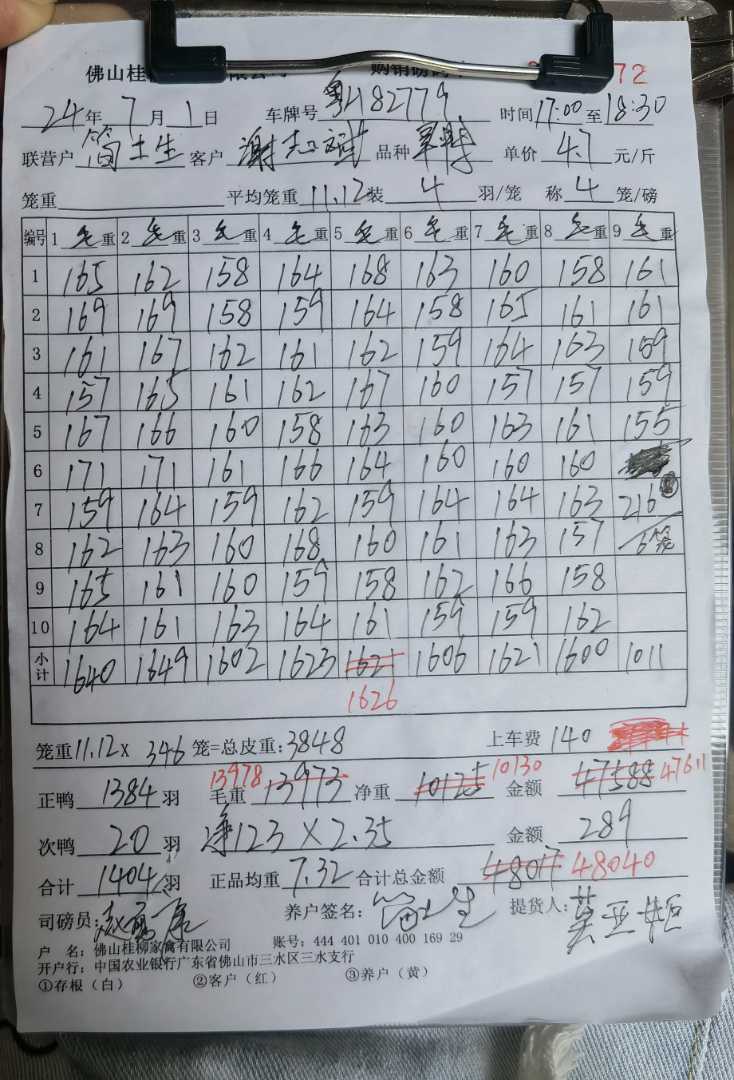 佛山桂
72
24年7月1日 车牌号 粤H82779 时间17:00至18:30
联营户 简土生 客户 谢志斌 品种 单价 4.7 元/斤
笼重 平均笼重 11.12 装 4 羽/笼 称 4 笼/磅
编号 1 毛重 2 毛重 3 毛重 4 毛重 5 毛重 6 毛重 7 毛重 8 毛重 9 毛重
1 165 162 158 164 168 163 160 158 161
2 169 169 158 159 164 158 165 161 161
3 161 167 162 161 162 159 164 163 159
4 157 165 161 162 167 160 157 157 159
5 167 166 160 158 163 160 163 161 155
6 171 171 161 166 164 160 160 160
7 159 164 159 162 159 164 164 163 216
8 162 163 160 168 160 161 163 157 6笼
9 165 161 160 159 158 162 166 158
10 164 161 163 164 161 159 159 162
小计 1640 1649 1602 1623 1621 1606 1621 1600 1011
1626
笼重11.12× 346 笼=总皮重:3848 上车费 140
13978 10130
正鸭 1384 羽 毛重 13973 净重 10125 金额 47588 47611
次鸭 20 羽 净123×2.35 金额 289
合计 1404 羽 正品均重 7.32 合计总金额 48040
司磅员: 养户签名: 简土生 提货人:
户 名: 佛山桂柳家禽有限公司 账号: 444 401 010 400 169 29
开户行: 中国农业银行广东省佛山市三水区三水支行
①存根（白） ②客户（红） ③养户（黄）